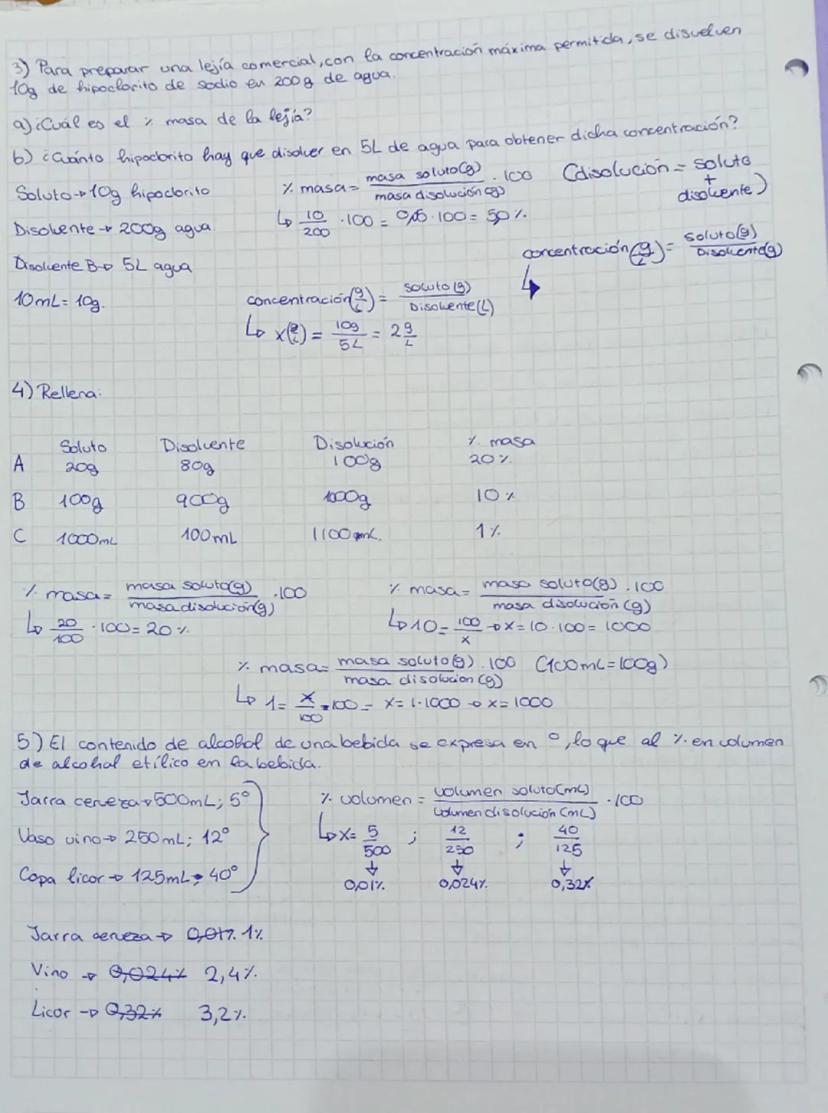 3) Para preparar una lejía comercial, con la concentración máxima permitida, se disuelven
10g de hipoclorito de sodio en 200g de agua.
a) ¿Cuál es el % masa de la lejía?
b) ¿Cuánto hipoclorito hay que disolver en 5L de agua para obtener dicha concentración?
Soluto → 10g hipoclorito
% masa = masa soluto(g) / masa disolución (g) · 100
(disolución = soluto + disolvente)
Disolvente → 200g agua
↳ 10/200 · 100 = 0,05 · 100 = 50%
Disolvente B → 5L agua
concentración (g/L) = soluto(g) / Disolvente(g)
↳
10mL = 10g.
concentración (g/L) = soluto (g) / Disolvente (L)
↳ x(g/L) = 10g / 5L = 2 g/L
4) Rellena:
Soluto Disolvente Disolución % masa
A 20g 80g 100g 20%
B 100g 900g 1000g 10%
C 1000mL 100mL 1100mL 1%
% masa = masa soluto(g) / masa disolución(g) · 100
↳ 20/100 · 100 = 20%
% masa = masa soluto(g) / masa disolución (g) · 100
↳ 10 = 100/x → x = 10 · 100 = 1000
% masa = masa soluto(g) / masa disolucion (g) · 100 (100mL = 100g)
↳ 1 = x/100 · 100 = x = 1 · 1000 → x = 1000
5) El contenido de alcohol de una bebida se expresa en º, lo que al % en volumen
de alcohol etílico en la bebida.
Jarra cerveza → 500mL; 5º
Vaso vino → 250mL; 12º
Copa licor → 125mL → 40º
% volumen = volumen soluto(mL) / volumen disolución (mL) · 100
↳ x = 5/500 ; 12/250 ; 40/125
↓ ↓ ↓
0,01% 0,024% 0,32%
Jarra cerveza → 0,01% 1%
Vino → 0,024% 2,4%
Licor → 0,32% 3,2%